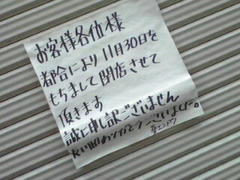 お客様各位様
都合により11月30日を
もちまして閉店させて
頂きます
誠に申し訳ございません
長い間ありがとうございました。